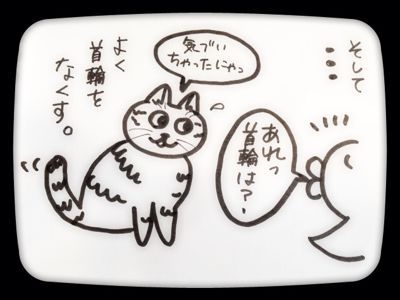 そして
・・・
あれっ
首輪は?
気づい
ちゃったにゃっ
よく
首輪を
なくす。